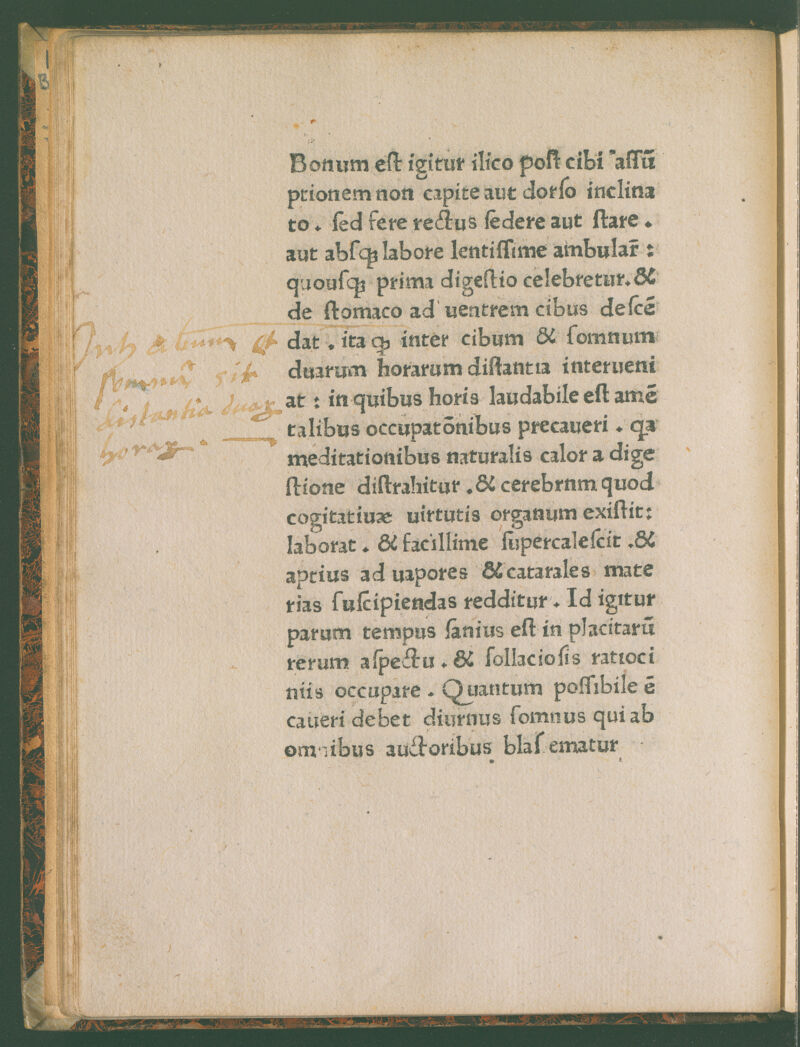 Bonum eſt igitur ilico poſt cibi aſſū
ptionem non capite aut dorſo inclina
to . ſed fere rectus ſedere aut ſtare .
aut abſqꝫ labore lentiſſime ambulaꝛ̄ :
quouſqꝫ prima digeſtio celebretur. &
de ſtomaco ad uentrem cibus deſcē
dat . ita qꝫ inter cibum & ſomnum
duarum horarum diſtantia interueni
at : in quibus horis laudabile eſt amē
talibus occupatōnibus precaueri . qa
meditationibus naturalis calor a dige
ſtione diſtrahitur . & cerebrnm quod
cogitatiuæ uirtutis organum exiſtit:
laborat . & facillime ſupercaleſcit . &
aptius ad uapores & catarales mate
rias ſuſcipiendas redditur . Id igitur
parum tempus ſanius eſt in placitarū
rerum aſpectu . & ſollacioſis ratioci
niis occupare . Quantum poſſibile ē
caueri debet diurnus ſomnus qui ab
omnibus auctoribus blaſ ematur
Int
ſomnū ſit
diſtantia duaꝝ
horaꝝ